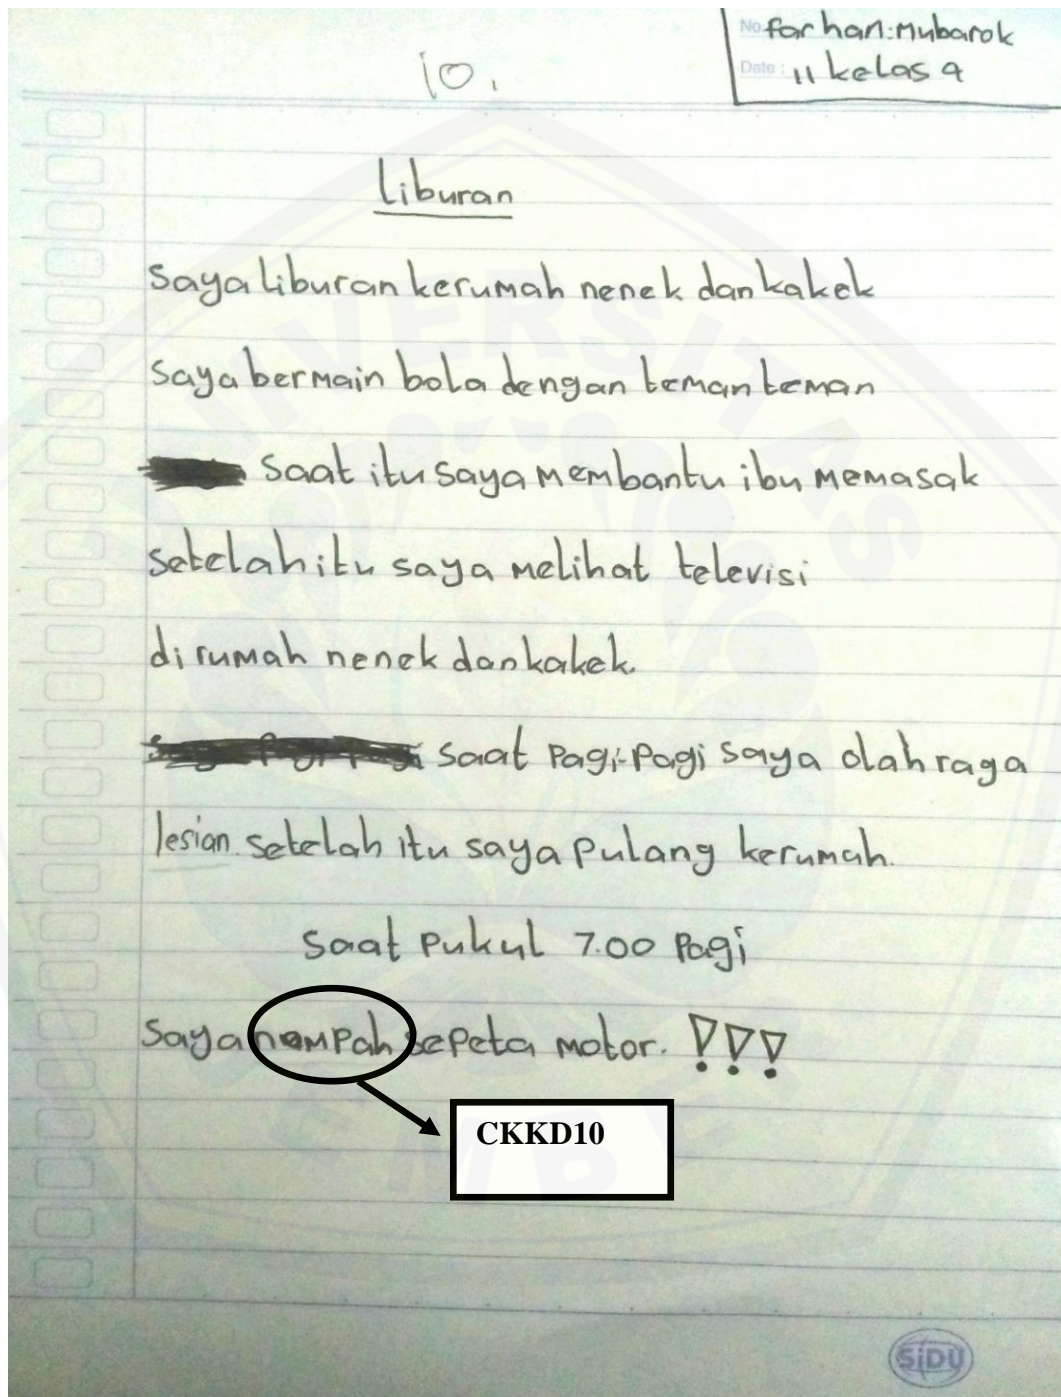 No. farhan:mubarok
10.
Date : 11 kelas 4
Liburan
Saya liburan kerumah nenek dan kakek
Saya bermain bola dengan teman teman
Saat itu saya membantu ibu memasak
Setelah itu saya melihat televisi
di rumah nenek dan kakek.
Saat pagi-pagi saya olah raga
lesian. Setelah itu saya pulang kerumah.
Saat pukul 7.00 pagi
Saya nompah sepeta motor. !!!
CKKD10
SiDU